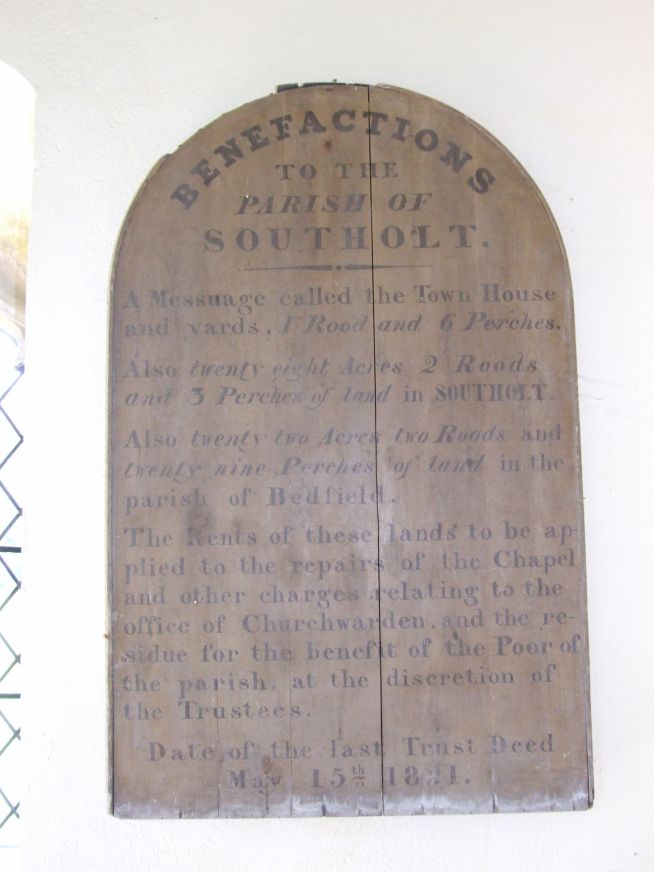 BENEFACTIONS
TO THE
PARISH OF
SOUTHOLT.
A Messuage called the Town House
and yards, 1 Rood and 6 Perches.
Also twenty eight Acres 2 Roods
and 3 Perches of land in SOUTHOLT.
Also twenty two Acres two Roods and
twenty nine Perches of land in the
parish of Bedfield.
The Rents of these lands to be ap-
plied to the repairs of the Chapel
and other charges relating to the
office of Churchwarden, and the re-
sidue for the benefit of the Poor of
the parish, at the discretion of
the Trustees.
Date of the last Trust Deed
May 15th 1821.